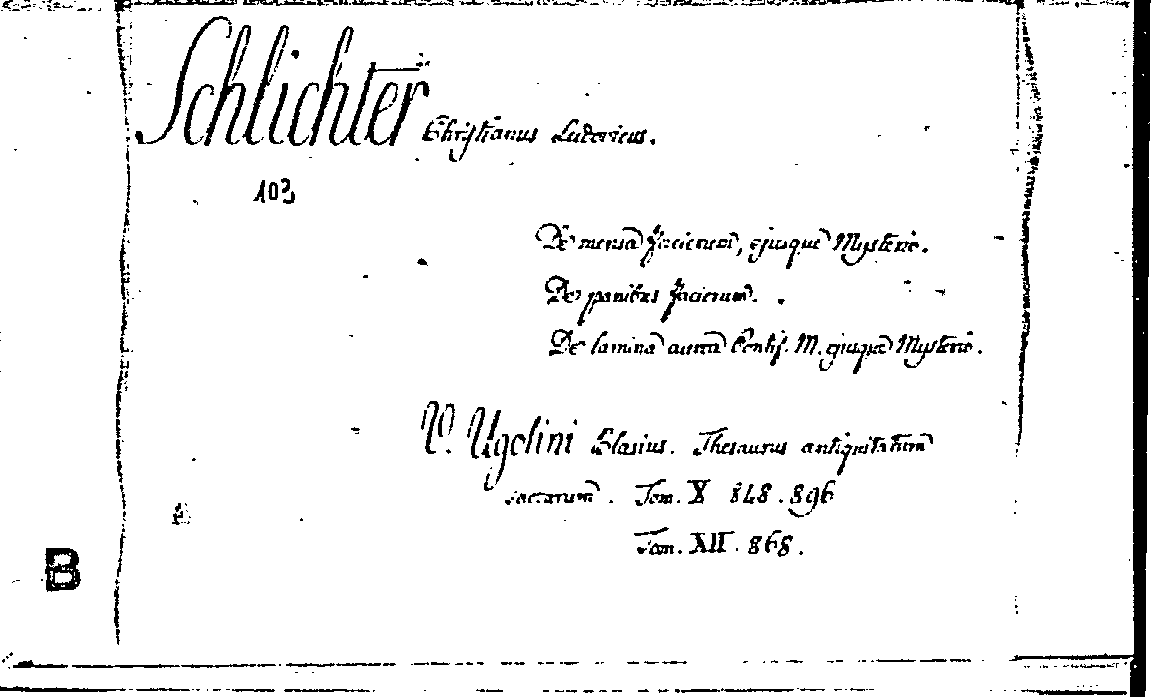 Schlichter Christianus Ludovicus.
103
De mensa facierum, ejusque Mysterio.
De panibus facierum.
De lamina aurea Pontif. M. ejusque Mysterio.
V. Ugolini Blasius. Thesaurus antiquitatum
sacrarum. Tom. X 848. 896
Tom. XII. 868.
B